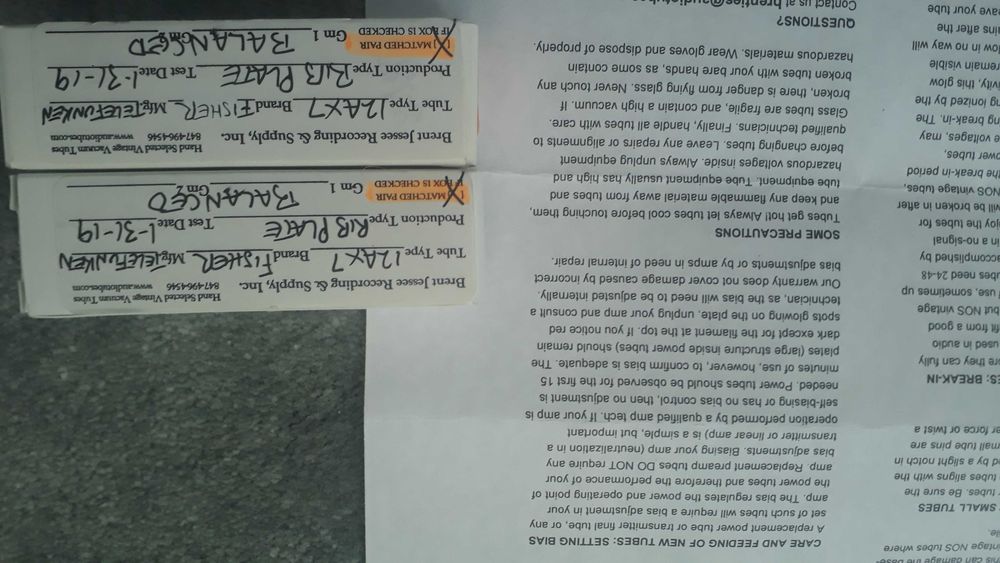 this can damage the
vintage NOS tubes where
SMALL TUBES
tubes. Be sure the
tubes aligns with the
by a slight notch in
small tube pins are
force or twist a
BREAK-IN
they can fully
used in audio
from a good
but NOS vintage
use, sometimes up
need 24-48
accomplished by
in a no-signal
the tubes for
will be broken in after
NOS vintage tubes,
the break-in period
tubes,
voltages, may
break-in. The
ionized by the
this glow
remain visible
in no way will
after the
your tube
CARE AND FEEDING OF NEW TUBES: SETTING BIAS
A replacement power tube or transmitter final tube, or any
set of such tubes will require a bias adjustment in your
amp. The bias regulates the power and operating point of
the power tubes and therefore the performance of your
amp. Replacement preamp tubes DO NOT require any
bias adjustments. Biasing your amp (neutralization in a
transmitter or linear amp) is a simple, but important
operation performed by a qualified amp tech. If your amp is
self-biasing or has no bias control, then no adjustment is
needed. Power tubes should be observed for the first 15
minutes of use, however, to confirm bias is adequate. The
plates (large structure inside power tubes) should remain
dark except for the filament at the top. If you notice red
spots glowing on the plate, unplug your amp and consult a
technician, as the bias will need to be adjusted internally.
Our warranty does not cover damage caused by incorrect
bias adjustments or by amps in need of internal repair.
SOME PRECAUTIONS
Tubes get hot! Always let tubes cool before touching them,
and keep any flammable material away from tubes and
tube equipment. Tube equipment usually has high and
hazardous voltages inside. Always unplug equipment
before changing tubes. Leave any repairs or alignments to
qualified technicians. Finally, handle all tubes with care.
Glass tubes are fragile, and contain a high vacuum. If
broken, there is danger from flying glass. Never touch any
broken tubes with your bare hands, as some contain
hazardous materials. Wear gloves and dispose of properly.
QUESTIONS?
Contact us at
Brent Jessee Recording & Supply, Inc.
Hand Selected Vintage Vacuum Tubes
847-496-4546 www.audiotubes.com
Tube Type 12AX7 Brand FISHER Mfg TELEFUNKEN
Production Type RIB PLATE Test Date 1-31-19
[X] MATCHED PAIR
IF BOX IS CHECKED
Gm 1 BALANCED Gm 2
Brent Jessee Recording & Supply, Inc.
Hand Selected Vintage Vacuum Tubes
847-496-4546 www.audiotubes.com
Tube Type 12AX7 Brand FISHER Mfg TELEFUNKEN
Production Type RIB PLATE Test Date 1-31-19
[X] MATCHED PAIR
IF BOX IS CHECKED
Gm 1 BALANCED